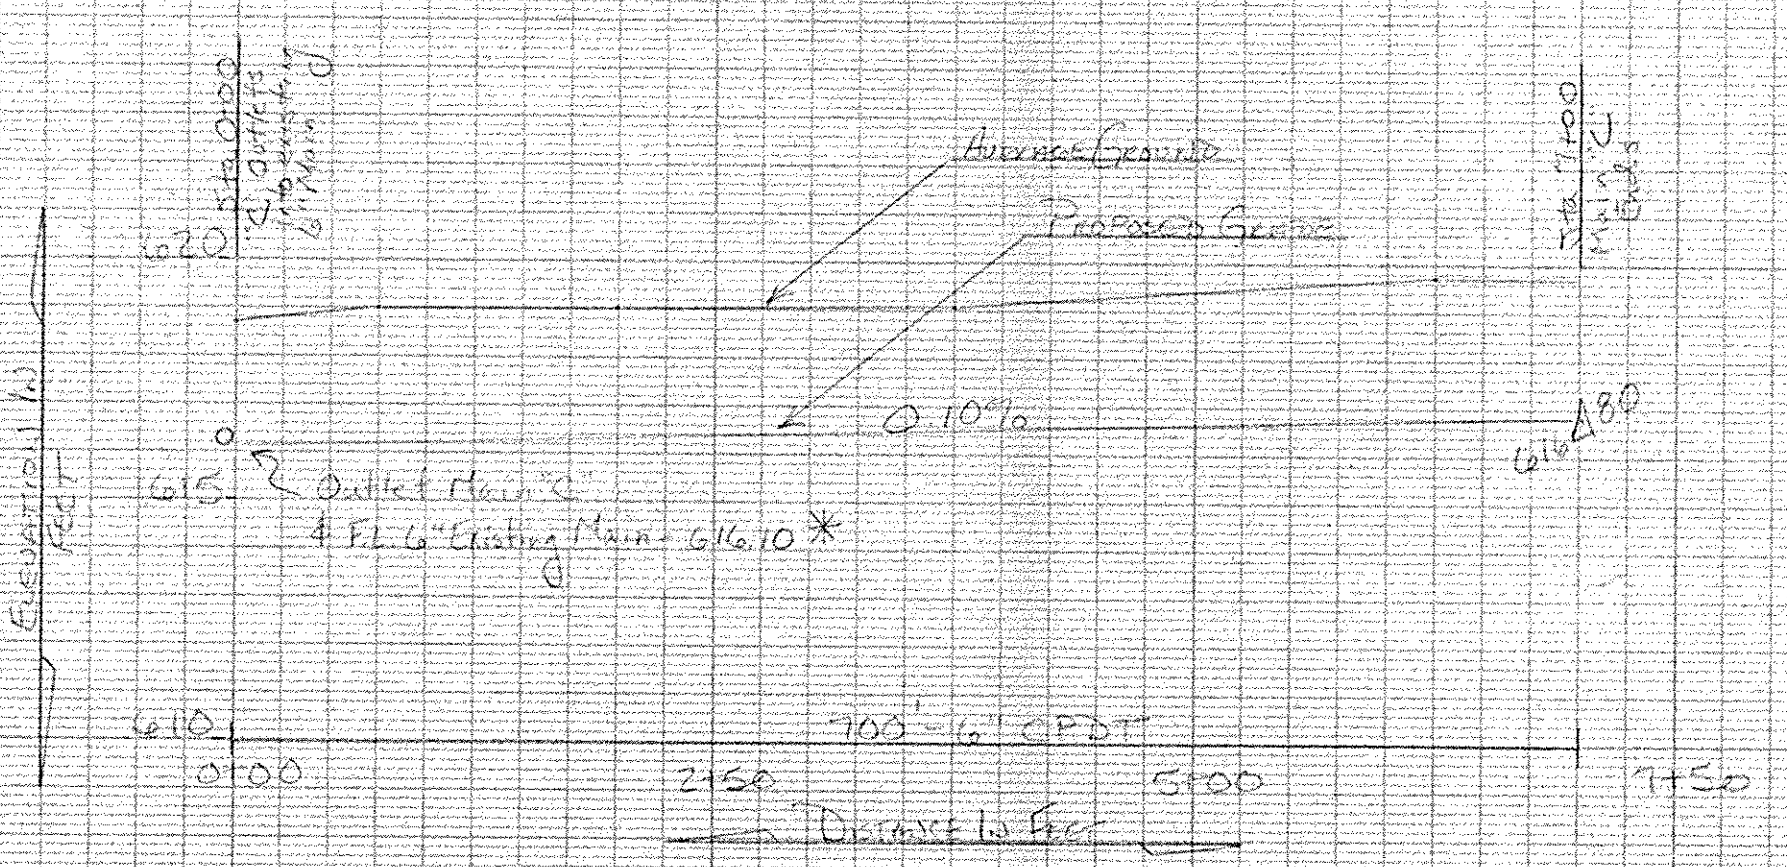 Sta 0+00
"C" Outlets
into existing
6" Main
Average Ground
Proposed Grade
Sta 7+00
Main "C"
Ends
620
0.10%
616.80
615
Outlet Main "C"
& F.L. 6" Existing Main - 616.10 *
Elevation In
Feet
610
700' - 6" CPDT
0+00
2+50
5+00
7+50
Distance In Feet